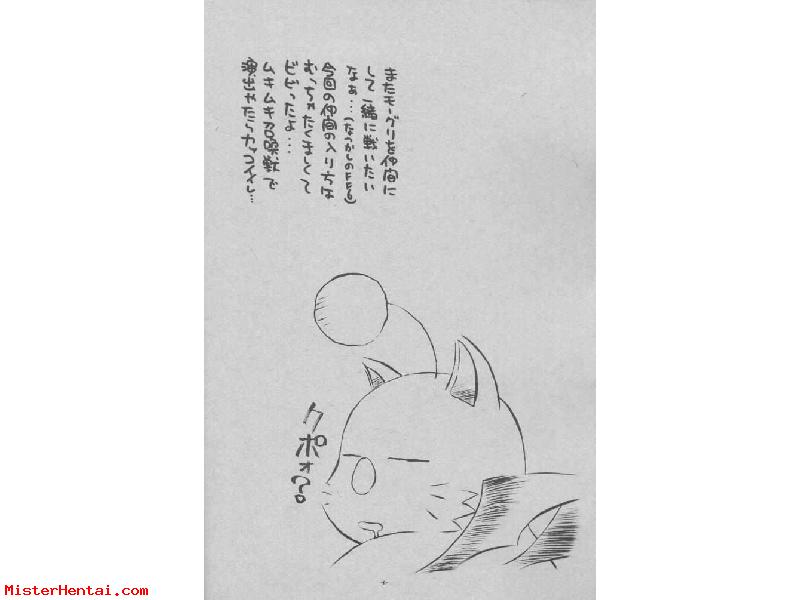 またモーグリを仲間に
して一緒に戦いたい
なぁ…(なつかしのFF6)
今回の仲間の入り方は
むっちゃたくましくて
ビビったよ…
ムキムキ召喚獣で
演出やたらカッコイイし…
クポォ?
MisterHentai.com